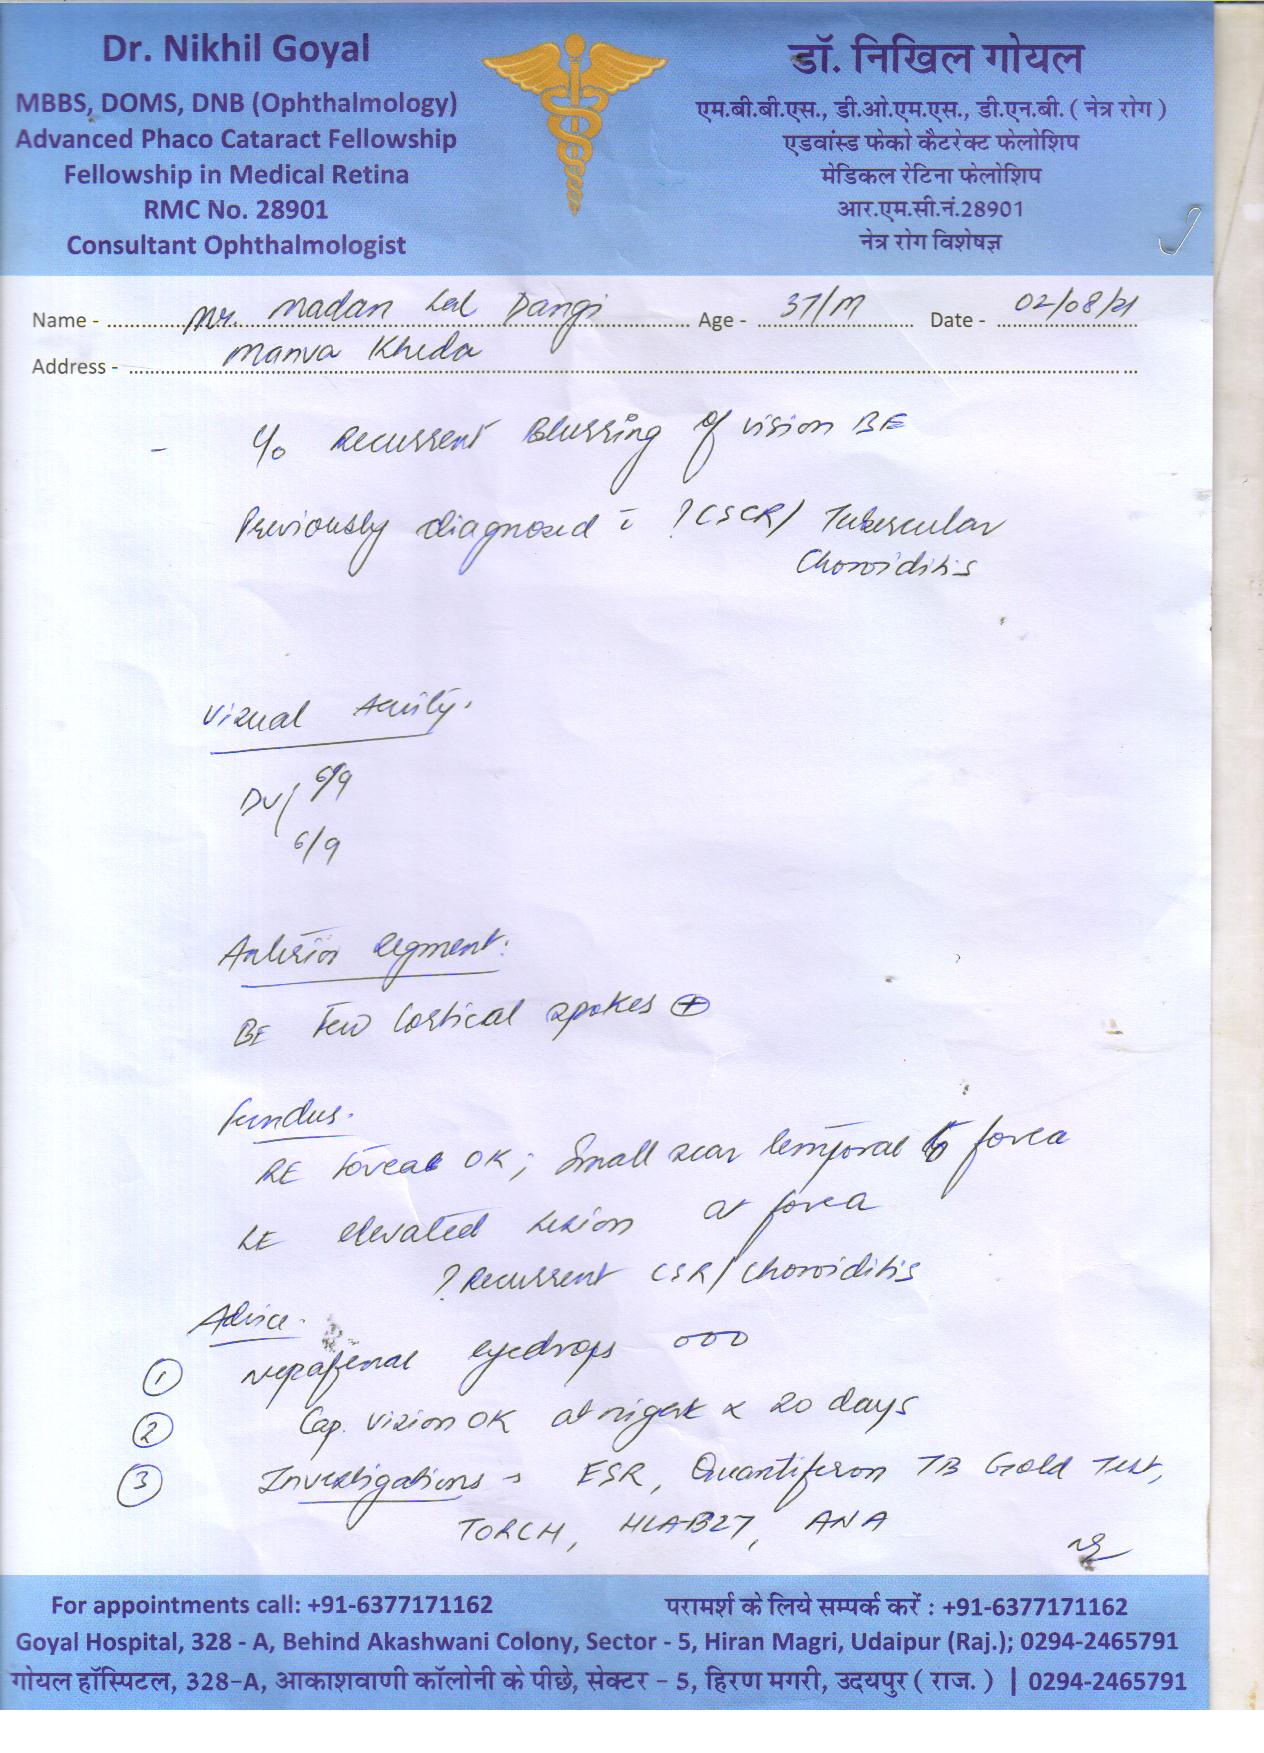 Dr. Nikhil Goyal
MBBS, DOMS, DNB (Ophthalmology)
Advanced Phaco Cataract Fellowship
Fellowship in Medical Retina
RMC No. 28901
Consultant Ophthalmologist
डॉ. निखिल गोयल
एम.बी.बी.एस., डी.ओ.एम.एस., डी.एन.बी. ( नेत्र रोग )
एडवांस्ड फेको कैटरेक्ट फेलोशिप
मेडिकल रेटिना फेलोशिप
आर.एम.सी.नं.28901
नेत्र रोग विशेषज्ञ
Name - Mr. Madan Lal Dangi Age - 37/M Date - 02/08/21
Address - Manva Kheda
- c/o Recurrent Blurring of vision BE
Previously diagnosed c̄ ? CSCR/ Tubercular
Choroiditis
Visual Acuity.
DV 6/9
6/9
Anterior Segment:
BE Few Cortical spokes ⊕
Fundus.
RE Foveal OK; Small scar temporal to fovea
LE elevated lesion at fovea
? Recurrent CSR/Choroiditis
Advice.
① Nepafenal eyedrops 000
② Cap. Vision OK at night x 20 days
③ Investigations → ESR, Quantiferon TB Gold Test,
TORCH, HLAB27, ANA
For appointments call: +91-6377171162
परामर्श के लिये सम्पर्क करें : +91-6377171162
Goyal Hospital, 328 - A, Behind Akashwani Colony, Sector - 5, Hiran Magri, Udaipur (Raj.); 0294-2465791
गोयल हॉस्पिटल, 328-A, आकाशवाणी कॉलोनी के पीछे, सेक्टर - 5, हिरण मगरी, उदयपुर ( राज. ) | 0294-2465791